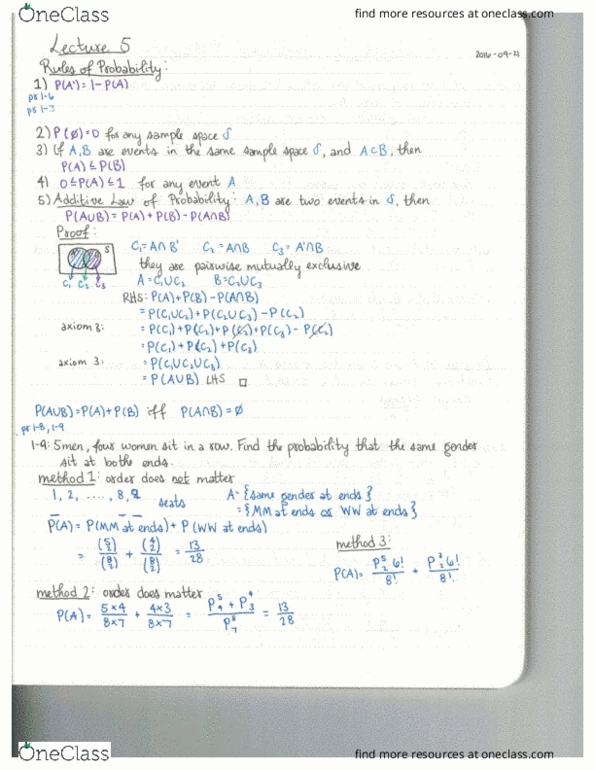 OneClass
find more resources at oneclass.com
Lecture 5
2016-09-21
Rules of Probability:
1) P(A')=1-P(A)
pr 1-6
pr 1-3
2) P(∅)=0 for any sample space S
3) If A,B are events in the same sample space S, and A⊂B, then
P(A)≤P(B)
4) 0≤P(A)≤1 for any event A
5) Additive Law of Probability: A,B are two events in S, then
P(A∪B)=P(A)+P(B)-P(A∩B)
Proof:
S
C₁ C₂ C₃
C₁=A∩B' C₂=A∩B C₃=A'∩B
they are pairwise mutually exclusive
A=C₁∪C₂ B=C₂∪C₃
RHS: P(A)+P(B)-P(A∩B)
=P(C₁∪C₂)+P(C₂∪C₃)-P(C₂)
axiom 3: =P(C₁)+P(C₂)+P(C₂)+P(C₃)-P(C₂)
=P(C₁)+P(C₂)+P(C₃)
axiom 3: =P(C₁∪C₂∪C₃)
=P(A∪B) LHS □
P(A∪B)=P(A)+P(B) iff P(A∩B)=∅
pr 1-8, 1-9
1-9: 5men, four women sit in a row. Find the probability that the same gender
sit at both ends.
method 1: order does not matter
1, 2, ...., 8, 9 seats A={same gender at ends}
={MM at ends or WW at ends}
P(A)=P(MM at ends)+P(WW at ends)
= (5 2)/(8 2) + (4 2)/(8 2) = 13/28
method 3:
P(A)= P⁵₂ 6!/8! + 6!/8!
method 2: order does matter
P(A)= 5×4/8×7 + 4×3/8×7 = = 13/28
OneClass
find more resources at oneclass.com